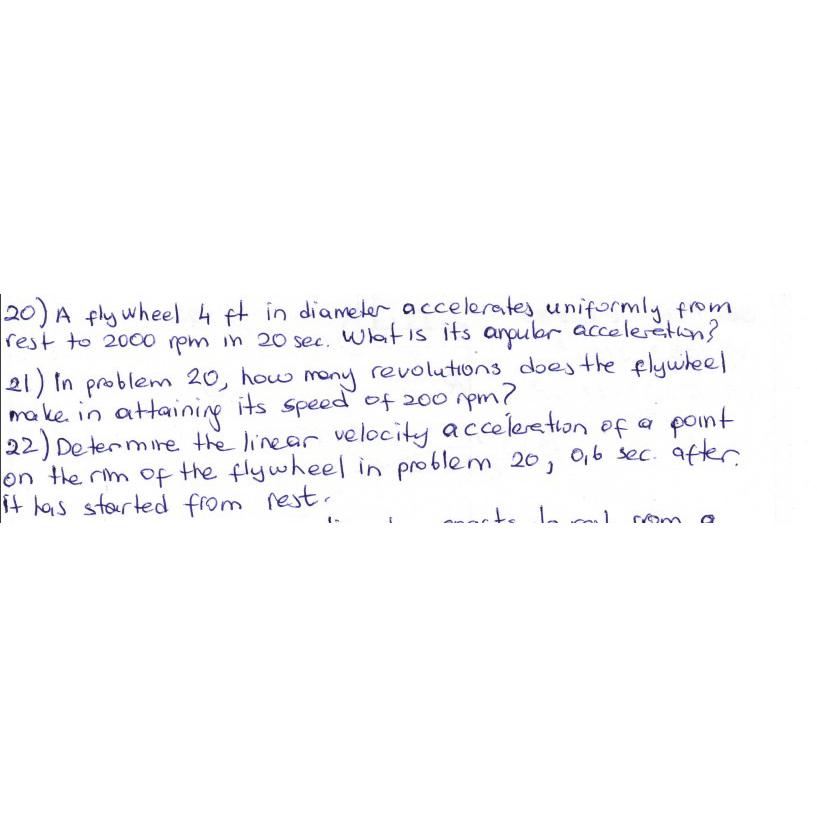 20) A flywheel 4 ft in diameter accelerates uniformly from
rest to 2000 rpm in 20 sec. What is its angular acceleration?
21) In problem 20, how many revolutions does the flywheel
make in attaining its speed of 200 rpm?
22) Determine the linear velocity acceleration of a point
on the rim of the flywheel in problem 20, 0,6 sec. after.
it has started from rest.